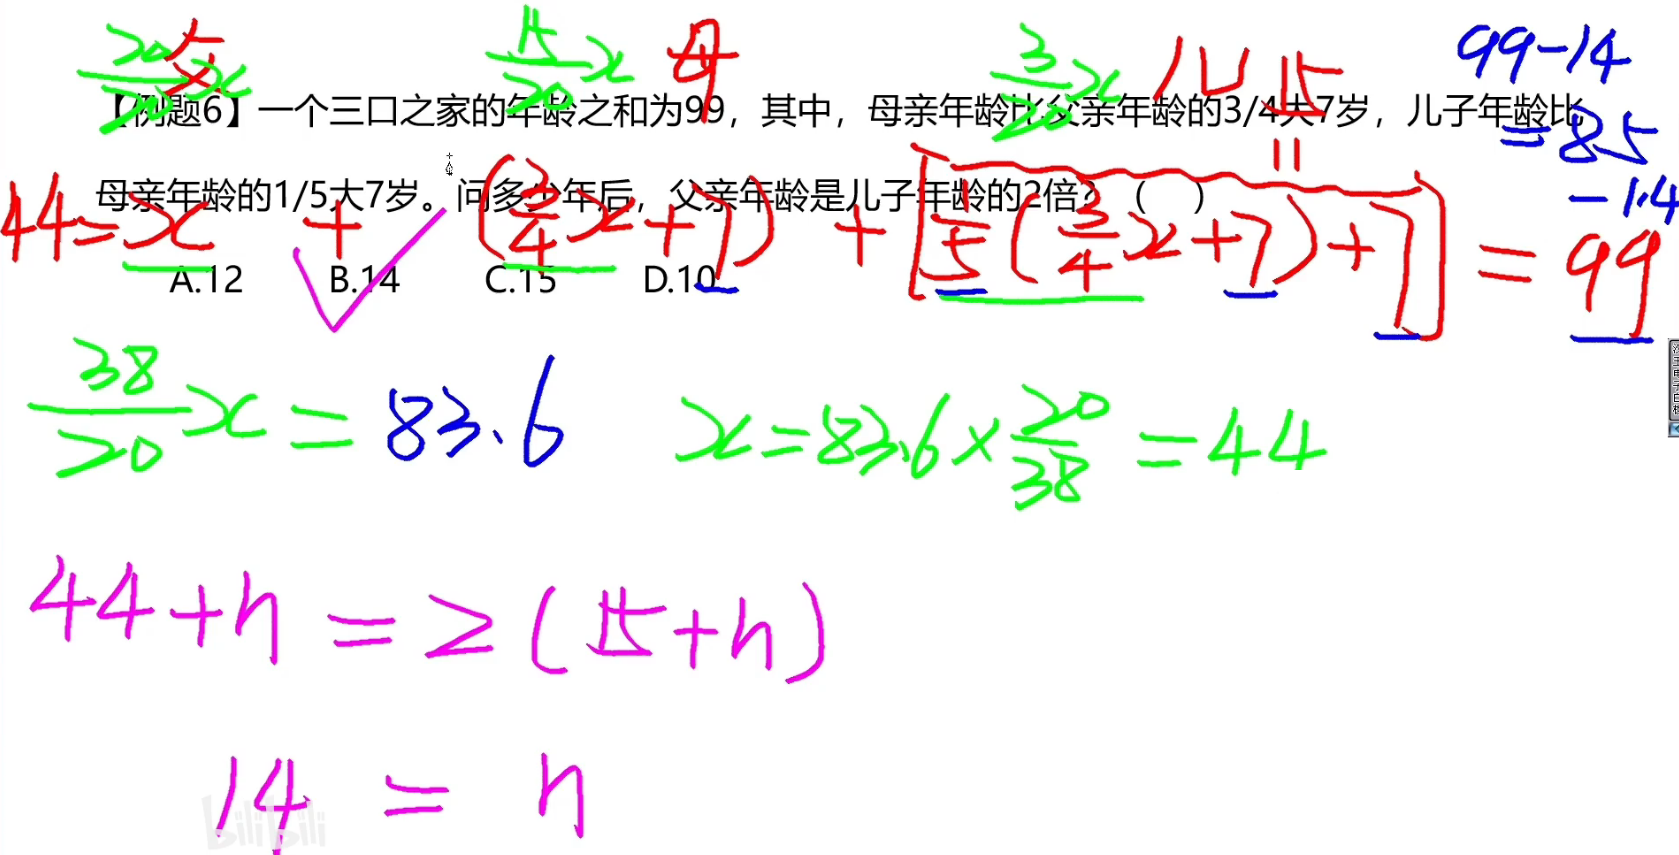 20/20 x 父 15/20 x 母 3/20 x 儿 15 99-14
【例题6】一个三口之家的年龄之和为99，其中，母亲年龄比父亲年龄的3/4大7岁，儿子年龄比
=85
母亲年龄的1/5大7岁。问多少年后，父亲年龄是儿子年龄的2倍？（ ）
-1.4
44=x + (3/4 x+7) + [1/5(3/4 x+7)+7] = 99
A.12 B.14 C.15 D.10
38/20 x = 83.6 x=83.6×20/38=44
44+n=2(15+n)
14 = n
bilibili